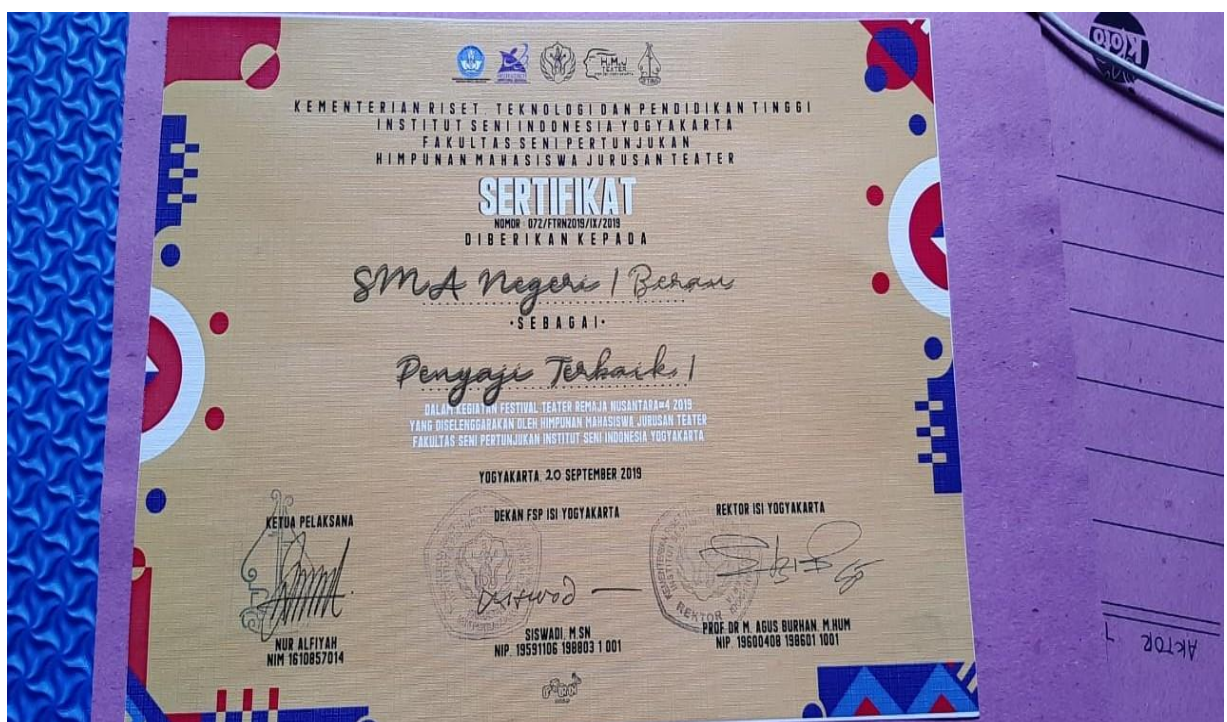 H.M.J
TEATER
KEMENTERIAN RISET, TEKNOLOGI DAN PENDIDIKAN TINGGI
INSTITUT SENI INDONESIA YOGYAKARTA
FAKULTAS SENI PERTUNJUKAN
HIMPUNAN MAHASISWA JURUSAN TEATER
SERTIFIKAT
NOMOR : 072/FTRN2019/IX/2019
DIBERIKAN KEPADA
SMA Negeri 1 Berau
•SEBAGAI•
Penyaji Terbaik 1
DALAM KEGIATAN FESTIVAL TEATER REMAJA NUSANTARA#4 2019
YANG DISELENGGARAKAN OLEH HIMPUNAN MAHASISWA JURUSAN TEATER
FAKULTAS SENI PERTUNJUKAN INSTITUT SENI INDONESIA YOGYAKARTA
YOGYAKARTA, 20 SEPTEMBER 2019
KETUA PELAKSANA
NUR ALFIYAH
NIM 1610857014
DEKAN FSP ISI YOGYAKARTA
SISWADI, M.SN
NIP. 19591106 198803 1 001
REKTOR ISI YOGYAKARTA
REKTOR
PROF. DR. M. AGUS BURHAN, M.HUM
NIP. 19600408 198601 1001
Kloto
AKTOR 1